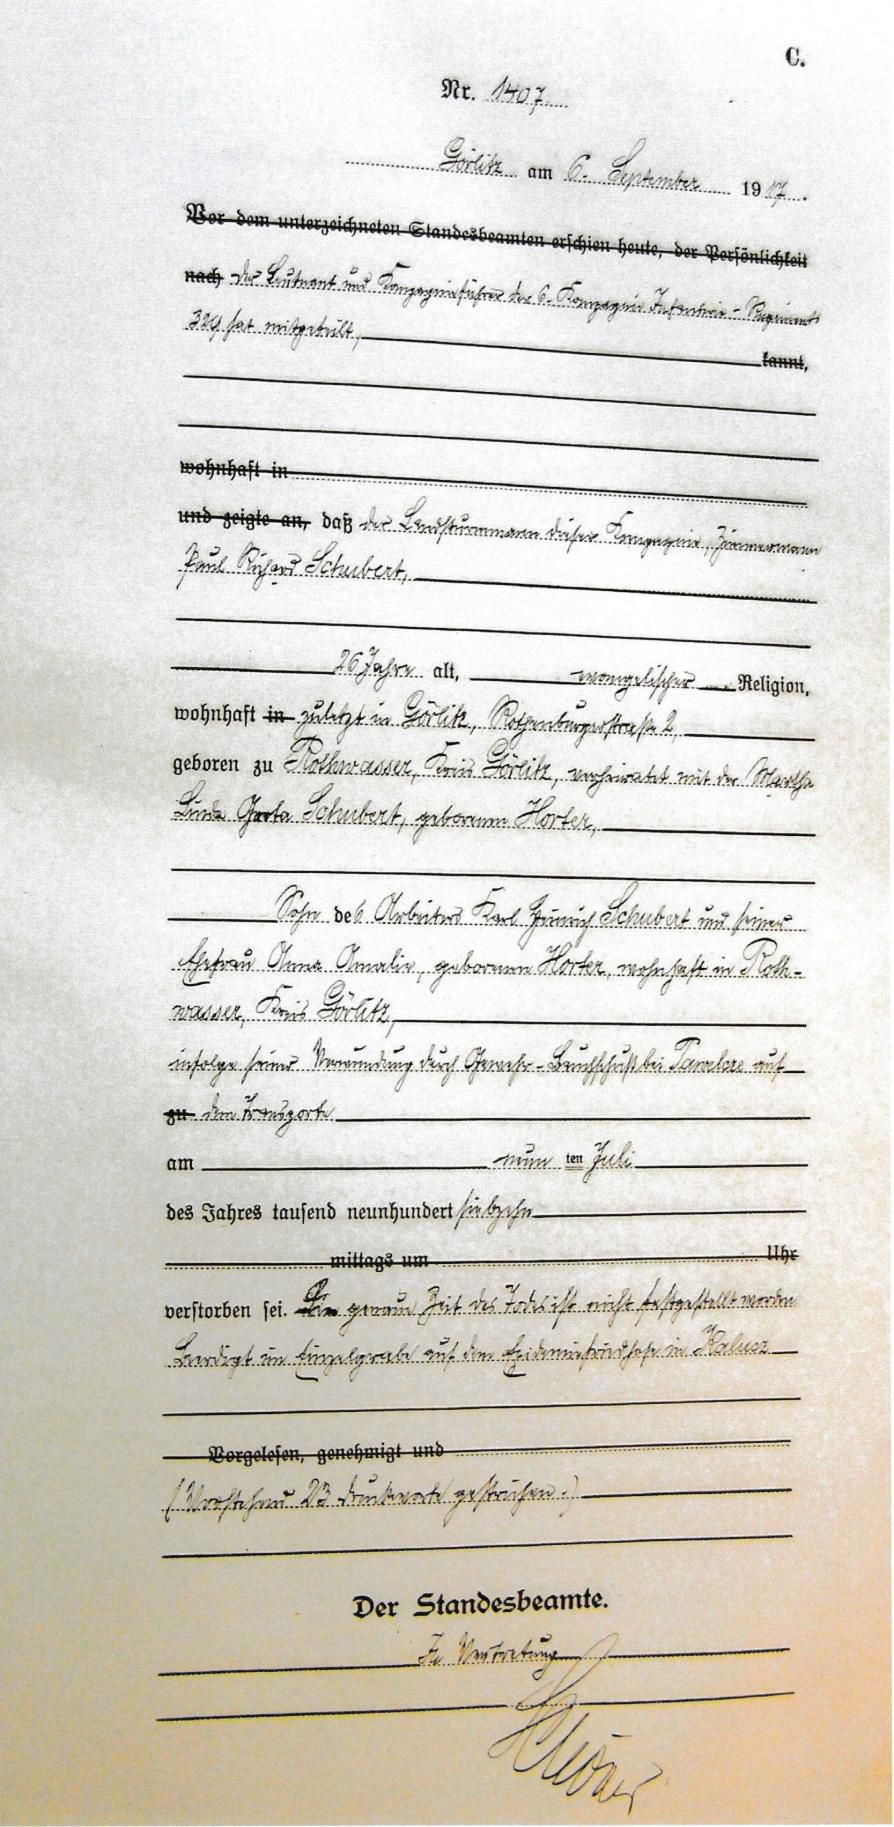 C.
Nr. 1407
Görlitz am 6. September 1917.
Vor dem unterzeichneten Standesbeamten erschien heute, der Persönlichkeit
nach der Leutnant und Kompagnieführer der 6. Kompagnie Infanterie-Regiments
329 hat mitgeteilt, kannt,
wohnhaft in
und zeigte an, daß der Landsturmmann dieser Kompagnie, Zimmermann
Paul Richard Schubert,
26 Jahre alt, evangelischer Religion,
wohnhaft in zuletzt in Görlitz, Rothenburgerstraße 2,
geboren zu Rothwasser, Kreis Görlitz, verheiratet mit der Martha
Linda Schubert, geborenen Horter,
Sohn des Arbeiters Karl Heinrich Schubert und seiner
Ehefrau Anna Amalie, geborenen Horter, wohnhaft in Roth-
wasser, Kreis Görlitz,
infolge seiner Verwundung durch Gewehr-Bauchschuß bei auf
zu dem Transporte
am neun ten Juli
des Jahres tausend neunhundert siebzehn
mittags um Uhr
verstorben sei. Die genaue Zeit des Todes ist nicht festgestellt worden
Beerdigt im Einzelgrabe auf dem Epidemiefriedhofe in Kalusz
Vorgelesen, genehmigt und
(Vorstehend 23 Druckworte gestrichen.)
Der Standesbeamte.
In Vertretung